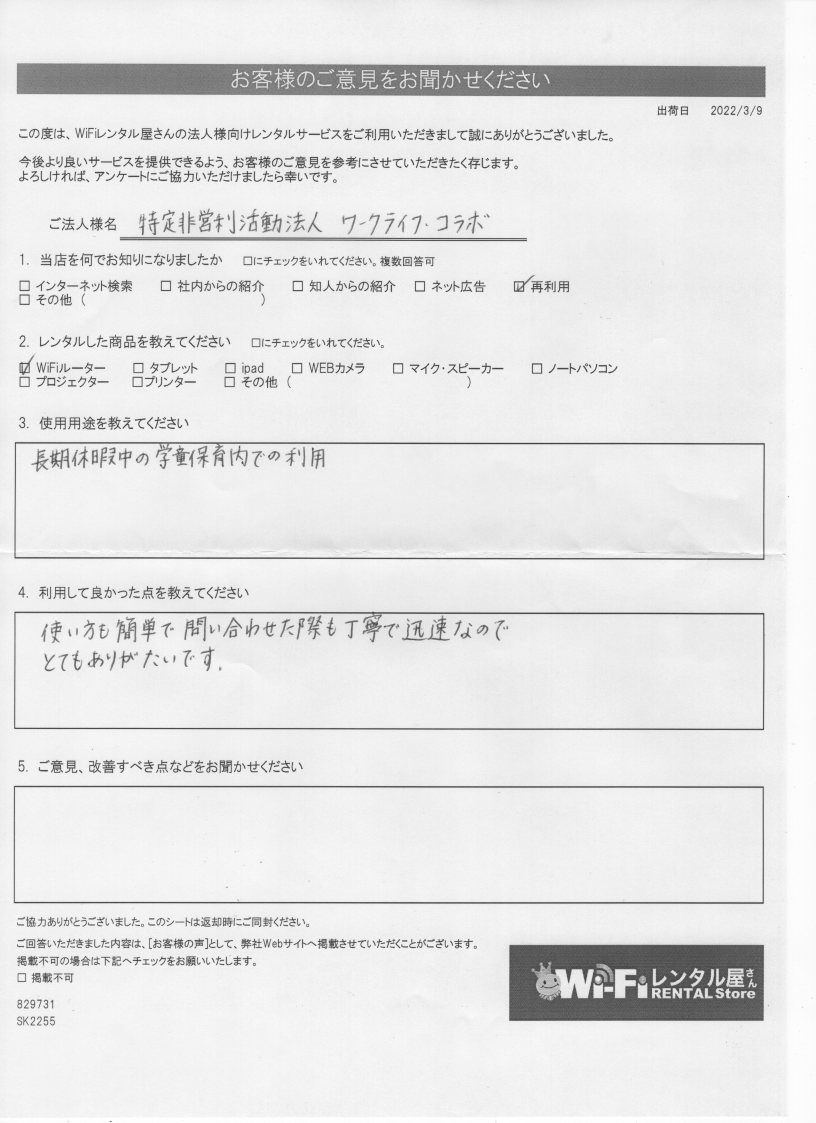 お客様のご意見をお聞かせください
出荷日 2022/3/9
この度は、WiFiレンタル屋さんの法人様向けレンタルサービスをご利用いただきまして誠にありがとうございました。
今後より良いサービスを提供できるよう、お客様のご意見を参考にさせていただきたく存じます。
よろしければ、アンケートにご協力いただけましたら幸いです。
ご法人様名 特定非営利活動法人 ワークライフ・コラボ
1. 当店を何でお知りになりましたか □にチェックをいれてください。複数回答可
□ インターネット検索 □ 社内からの紹介 □ 知人からの紹介 □ ネット広告 ☑ 再利用
□ その他 ( )
2. レンタルした商品を教えてください □にチェックをいれてください。
☑ WiFiルーター □ タブレット □ ipad □ WEBカメラ □ マイク・スピーカー □ ノートパソコン
□ プロジェクター □プリンター □ その他 ( )
3. 使用用途を教えてください
長期休暇中の学童保育内での利用
4. 利用して良かった点を教えてください
使い方も簡単で問い合わせた際も丁寧で迅速なので
とてもありがたいです.
5. ご意見、改善すべき点などをお聞かせください
ご協力ありがとうございました。このシートは返却時にご同封ください。
ご回答いただきました内容は、[お客様の声]として、弊社Webサイトへ掲載させていただくことがございます。
掲載不可の場合は下記へチェックをお願いいたします。
□ 掲載不可
829731
SK2255
Wi-Fiレンタル屋さん
RENTAL Store